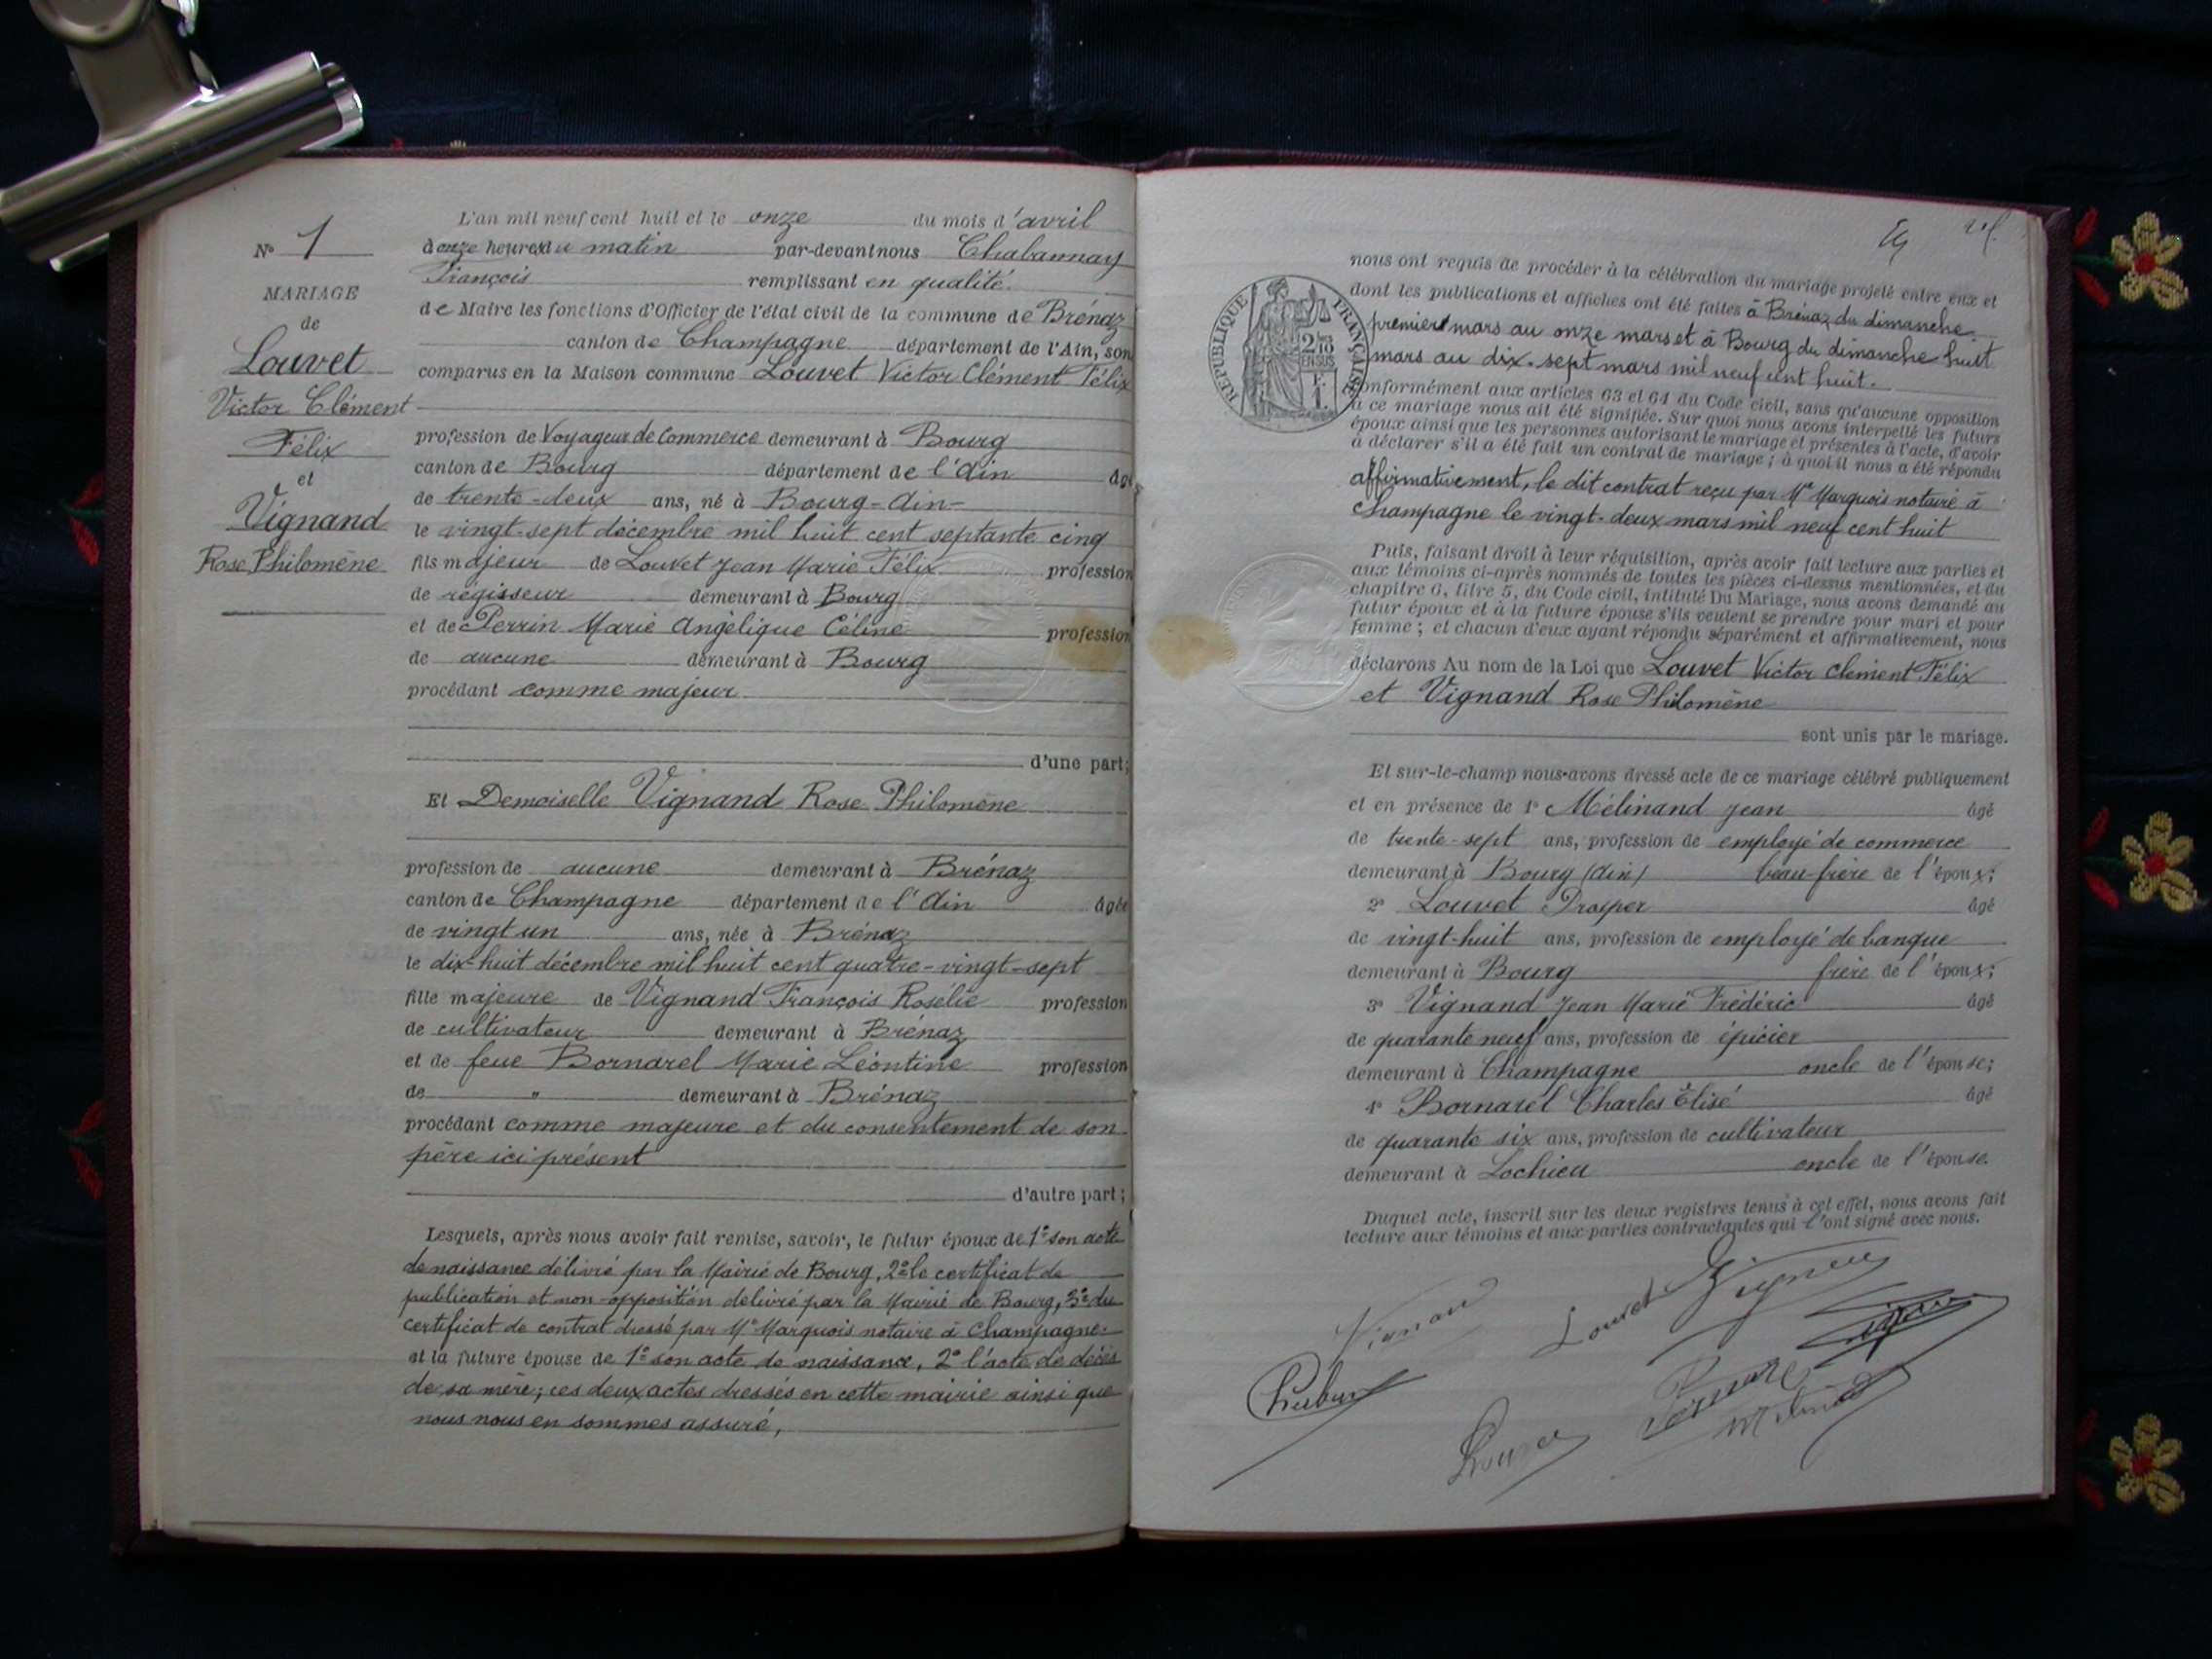 N° 1
MARIAGE
de
Louvet
Victor Clément
Félix
et
Vignand
Rose Philomène
L'an mil neuf cent huit et le onze du mois d'avril
à onze heures du matin par-devant nous Chabannay
François remplissant en qualité
de Maire les fonctions d'Officier de l'état civil de la commune de Brénaz
canton de Champagne département de l'Ain, son
comparus en la Maison commune Louvet Victor Clément Félix
profession de Voyageur de Commerce demeurant à Bourg
canton de Bourg département de l'Ain âgé
de trente-deux ans, né à Bourg-Ain-
le vingt-sept décembre mil huit cent septante cinq
fils majeur de Louvet Jean Marie Félix profession
de régisseur demeurant à Bourg
et de Perrin Marie Angélique Céline profession
de aucune demeurant à Bourg
procédant comme majeur
d'une part;
Et Demoiselle Vignand Rose Philomène
profession de aucune demeurant à Brénaz
canton de Champagne département de l'Ain âgée
de vingt un ans, née à Brénaz
le dix-huit décembre mil huit cent quatre-vingt-sept
fille majeure de Vignand François Rosélie profession
de cultivateur demeurant à Brénaz
et de feue Bornarel Marie Léontine profession
de " demeurant à Brénaz
procédant comme majeure et du consentement de son
père ici présent
d'autre part;
Lesquels, après nous avoir fait remise, savoir, le futur époux de 1° son acte
de naissance délivré par la Mairie de Bourg, 2° le certificat de
publication et non-opposition délivré par la Mairie de Bourg, 3° du
certificat de contrat dressé par Me Marquois notaire à Champagne.
et la future épouse de 1° son acte de naissance, 2° l'acte de décès
de sa mère; ces deux actes dressés en cette mairie ainsi que
nous nous en sommes assuré,
RÉPUBLIQUE FRANÇAISE
2/10
EN SUS
F.
1.
nous ont requis de procéder à la célébration du mariage projeté entre eux et
dont les publications et affiches ont été faites à Brénaz du dimanche
premier mars au onze mars et à Bourg du dimanche huit
mars au dix-sept mars mil neuf cent huit.
conformément aux articles 63 et 64 du Code civil, sans qu'aucune opposition
à ce mariage nous ait été signifiée. Sur quoi nous avons interpellé les futurs
époux ainsi que les personnes autorisant le mariage et présentes à l'acte, d'avoir
à déclarer s'il a été fait un contrat de mariage; à quoi il nous a été répondu
affirmativement, le dit contrat reçu par Me Marquois notaire à
Champagne le vingt-deux mars mil neuf cent huit
Puis, faisant droit à leur réquisition, après avoir fait lecture aux parties et
aux témoins ci-après nommés de toutes les pièces ci-dessus mentionnées, et du
chapitre 6, titre 5, du Code civil, intitulé Du Mariage, nous avons demandé au
futur époux et à la future épouse s'ils veulent se prendre pour mari et pour
femme; et chacun d'eux ayant répondu séparément et affirmativement, nous
déclarons Au nom de la Loi que Louvet Victor Clément Félix
et Vignand Rose Philomène
sont unis par le mariage.
Et sur-le-champ nous avons dressé acte de ce mariage célébré publiquement
et en présence de 1° Mélinand Jean âgé
de trente-sept ans, profession de employé de commerce
demeurant à Bourg (Ain) beau-frère de l'époux;
2° Louvet Prosper âgé
de vingt-huit ans, profession de employé de banque
demeurant à Bourg frère de l'époux;
3° Vignand Jean Marie Frédéric âgé
de quarante neuf ans, profession de épicier
demeurant à Champagne oncle de l'épouse;
4° Bornarel Charles Élisé âgé
de quarante six ans, profession de cultivateur
demeurant à Lochieu oncle de l'épouse.
Duquel acte, inscrit sur les deux registres tenus à cet effet, nous avons fait
lecture aux témoins et aux parties contractantes qui l'ont signé avec nous.
Vignand
Louvet